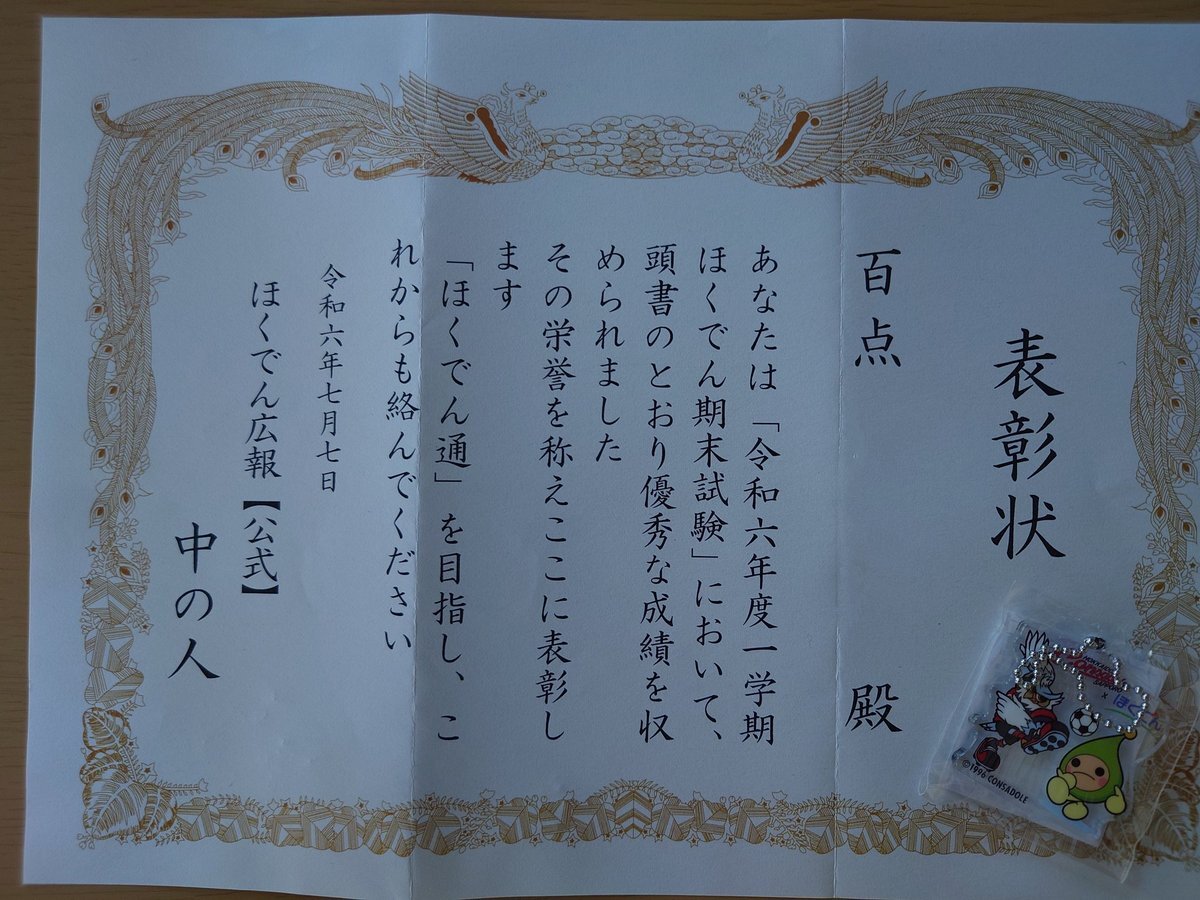 表彰状
百点 殿
あなたは「令和六年度一学期
ほくでん期末試験」において、
頭書のとおり優秀な成績を収
められました
その栄誉を称えここに表彰し
ます
「ほくでん通」を目指し、こ
れからも絡んでください
令和六年七月七日
ほくでん広報【公式】
中の人
×
©1996 CONSADOLE